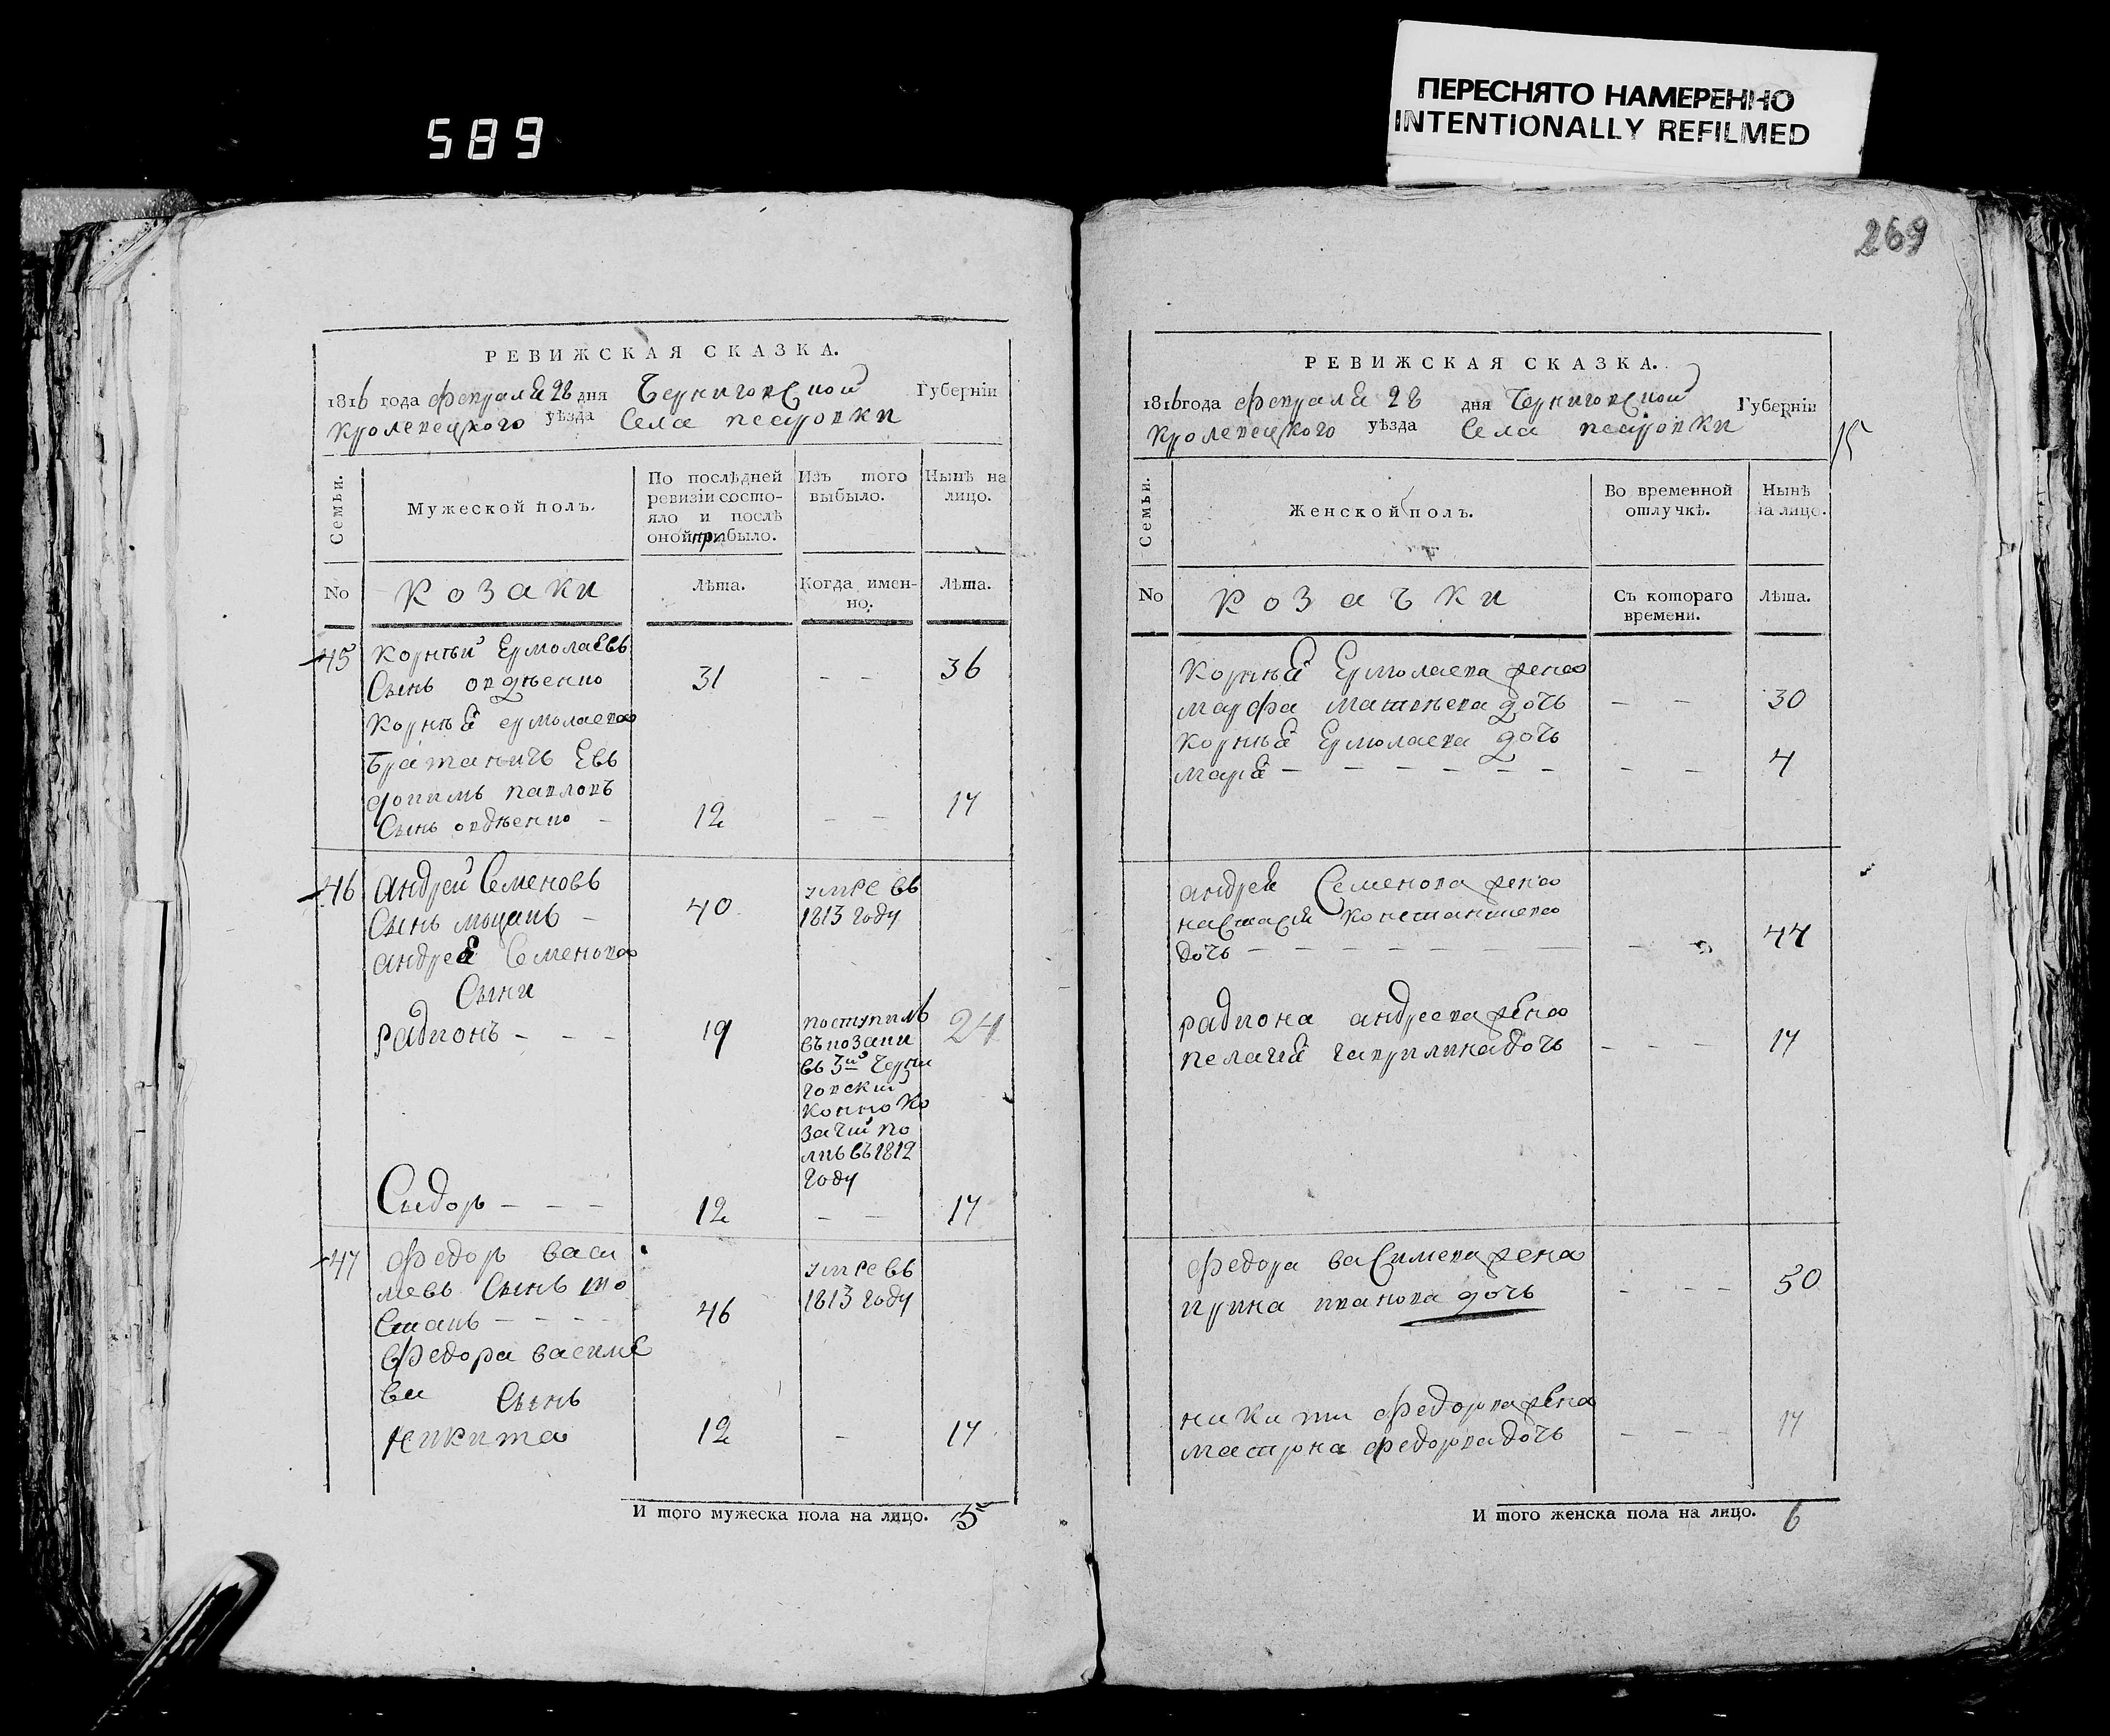 589
ПЕРЕСНЯТО НАМЕРЕННО
INTENTIONALLY REFILMED
269
РЕВИЖСКАЯ СКАЗКА.
1816 года февраля 28 дня Черниговской Губернїи
Кролевецкого уѣзда Села пестровки
Семьи.
Мужеской полъ.
По послѣдней
ревизїи состо-
яло и послѣ
оной прибыло.
Изъ того
выбыло.
Нынѣ на
лицо.
No
козаки
Лѣта.
Когда имен-
но.
Лѣта.
45 корнѣй Ермолаевъ
Сынъ 31 - - 36
корнѣя ермолаева
братаничъ Ев
доким павловъ
Сынъ 12 - - 17
46 андрей Семеновъ умре въ
Сынъ 40 1813 году
андрея Семенова
Сыни
радионъ - - - 19 поступилъ 24
въ козаки
въ 3й Черни
говский
конно ко
зачий по
лкъ въ 1812
году
Сидор - - - 12 - - 17
47 федор васи умре въ
левъ Сынъ то 46 1813 году
федора василе
ва Сынъ
никита 12 - 17
И того мужеска пола на лицо. 5
РЕВИЖСКАЯ СКАЗКА.
1816 года февраля 28 дня Черниговской Губернїи
Кролевецкого уѣзда Села пестровки
15
Семьи.
Женской полъ.
Во временной
отлучкѣ.
Нынѣ
на лицо.
No
козачки
Съ котораго
времени.
Лѣта.
корнѣя Ермолаева жена
марфа матвѣева дочь - - 30
корнѣя Ермолаева дочь
марѣя - - - - - - - - 4
андрея Семенова жена
настасия константиева
дочь - - - - - - 44
радиона андреева жена
пелагия гаврилина дочь - - - 17
федора василиева жена
ирина иванова дочь - - - 50
никити федорва жена
матрона федорва дочь - - - 17
И того женска пола на лицо. 6